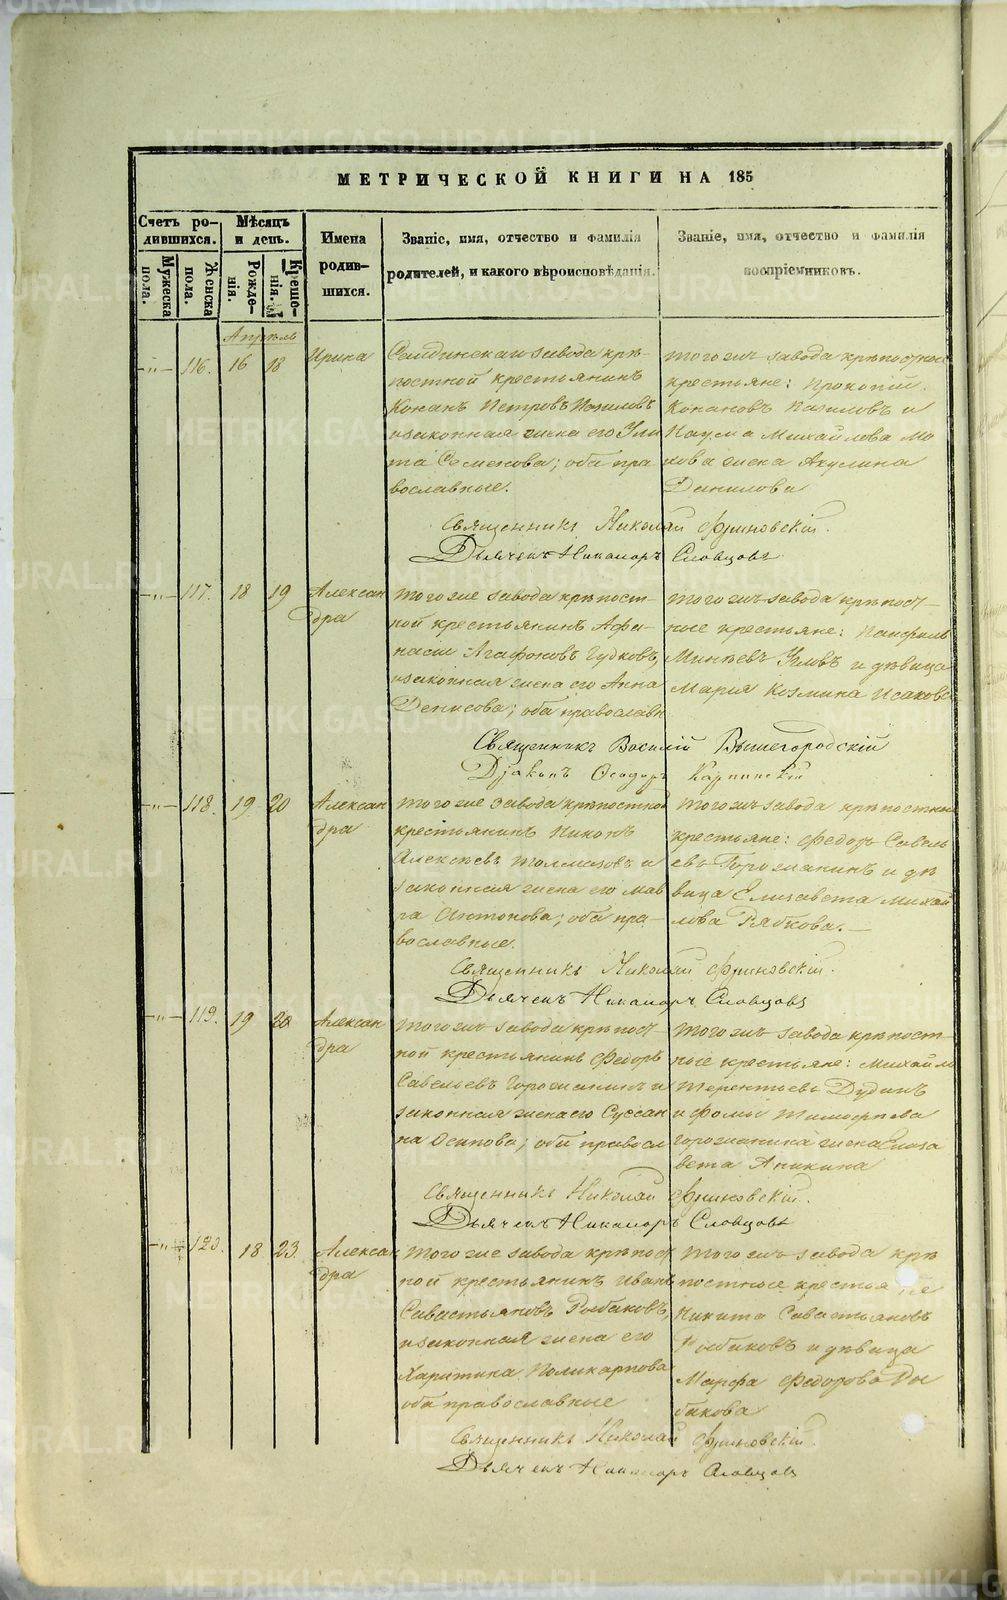 МЕТРИЧЕСКОЙ КНИГИ НА 185
Счетъ ро-
дившихся.
Мужеска
пола.
Женска
пола.
Мѣсяцъ
и день.
Рожде-
нія.
Креще-
нія.
Имена
родив-
шихся.
Званіе, имя, отчество и фамилія
родителей, и какого вѣроисповѣданія.
Званіе, имя, отчество и фамилія
воспріемниковъ.
Апрѣль
116. 16 18
Ирина
завода крѣ-
постной крестьянинъ
Конанъ Петровъ
изаконная жена его Ули
та Семенова; оба пра
вославные.
тогожъ завода крѣпостные
крестьяне: Прокопій
Конановъ и
Наума Михайлова
жена Акулина
Данилова
Священникъ Николай Финовскій.
Дьячекъ Никаноръ Словцовъ
117. 18 19
Алексан
дра
тогоже завода крѣпост-
ной крестьянинъ Афа-
насіи Агафоновъ Гудковъ,
изаконная жена его Анна
Денисова; оба православн
тогожъ завода крѣпост-
ные крестьяне: Панфилъ
Минѣевъ и дѣвица
Марія Козмина Исакова
Священникъ Василій Вышегородскій
Діаконъ Ѳеодоръ Карпинскій
118. 19 20
Алексан
дра
тогоже завода крѣпостной
крестьянинъ Никонъ
Алексѣевъ Толмазовъ и
законная жена его Мав
ра Антонова; оба пра-
вославные.
тогожъ завода крѣпостные
крестьяне: Федоръ Савель
евъ Горожанинъ и дѣ
вица Елизавета Михай
лова Рябкова.
Священникъ Николай Финовскій.
Дьячекъ Никаноръ Словцовъ
119. 19 20
Алексан
дра
тогожъ завода крѣпост
ной крестьянинъ Федоръ
Савельевъ Горожанинъ и
законная жена его Суссан
на Осипова; оба правосл
тогожъ завода крѣпост-
ные крестьяне: Михайло
Терентьевъ Дудинъ
и Фомы Тимофѣева
Горожанина жена Елиза
вета Аникина
Священникъ Николай Финовскій.
Дьячекъ Никаноръ Словцовъ
120. 18 23.
Алексан
дра
тогоже завода крѣпост
ной крестьянинъ Иванъ
Савастьяновъ Рыбаковъ,
изаконная жена его
Харитина Поликарпова
оба православные
тогожъ завода крѣ
постные крестьяне
Никита Савастьяновъ
Рыбаковъ и дѣвица
Марфа Федорова Ры
бакова
Священникъ Николай Финовскій.
Дьячекъ Никаноръ Словцовъ
METRIKI.GASO-URAL.RU